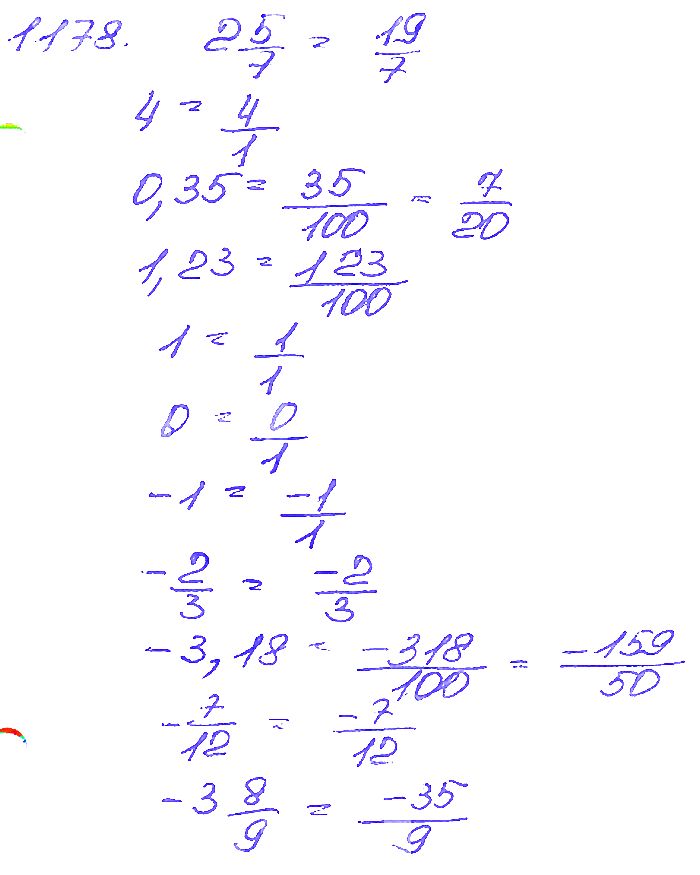 1178. 2 5/7 = 19/7
4 = 4/1
0,35 = 35/100 = 7/20
1,23 = 123/100
1 = 1/1
0 = 0/1
-1 = -1/1
-2/3 = -2/3
-3,18 = -318/100 = -159/50
-7/12 = -7/12
-3 8/9 = -35/9